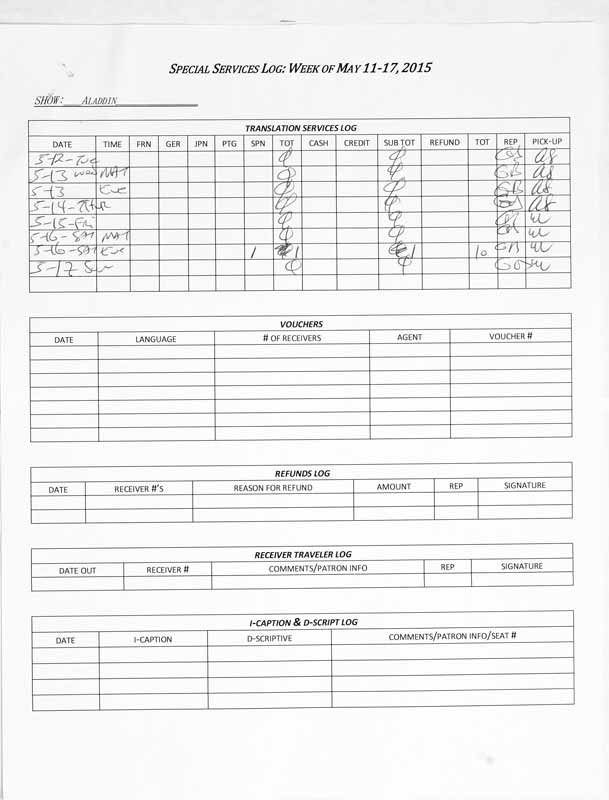 SPECIAL SERVICES LOG: WEEK OF MAY 11-17, 2015
SHOW: ALADDIN
TRANSLATION SERVICES LOG
DATE TIME FRN GER JPN PTG SPN TOT CASH CREDIT SUB TOT REFUND TOT REP PICK-UP
5-12-Tue ϕ ϕ
5-13 wed MAT ϕ ϕ GB
5-13 Eve ϕ ϕ GB
5-14-Thur ϕ ϕ
5-15-Fri ϕ ϕ
5-16-SAT MAT ϕ ϕ
5-16-SAT Eve 1 1 1 10 GB
5-17 Sun ϕ ϕ
VOUCHERS
DATE LANGUAGE # OF RECEIVERS AGENT VOUCHER #
REFUNDS LOG
DATE RECEIVER #'S REASON FOR REFUND AMOUNT REP SIGNATURE
RECEIVER TRAVELER LOG
DATE OUT RECEIVER # COMMENTS/PATRON INFO REP SIGNATURE
I-CAPTION & D-SCRIPT LOG
DATE I-CAPTION D-SCRIPTIVE COMMENTS/PATRON INFO/SEAT #